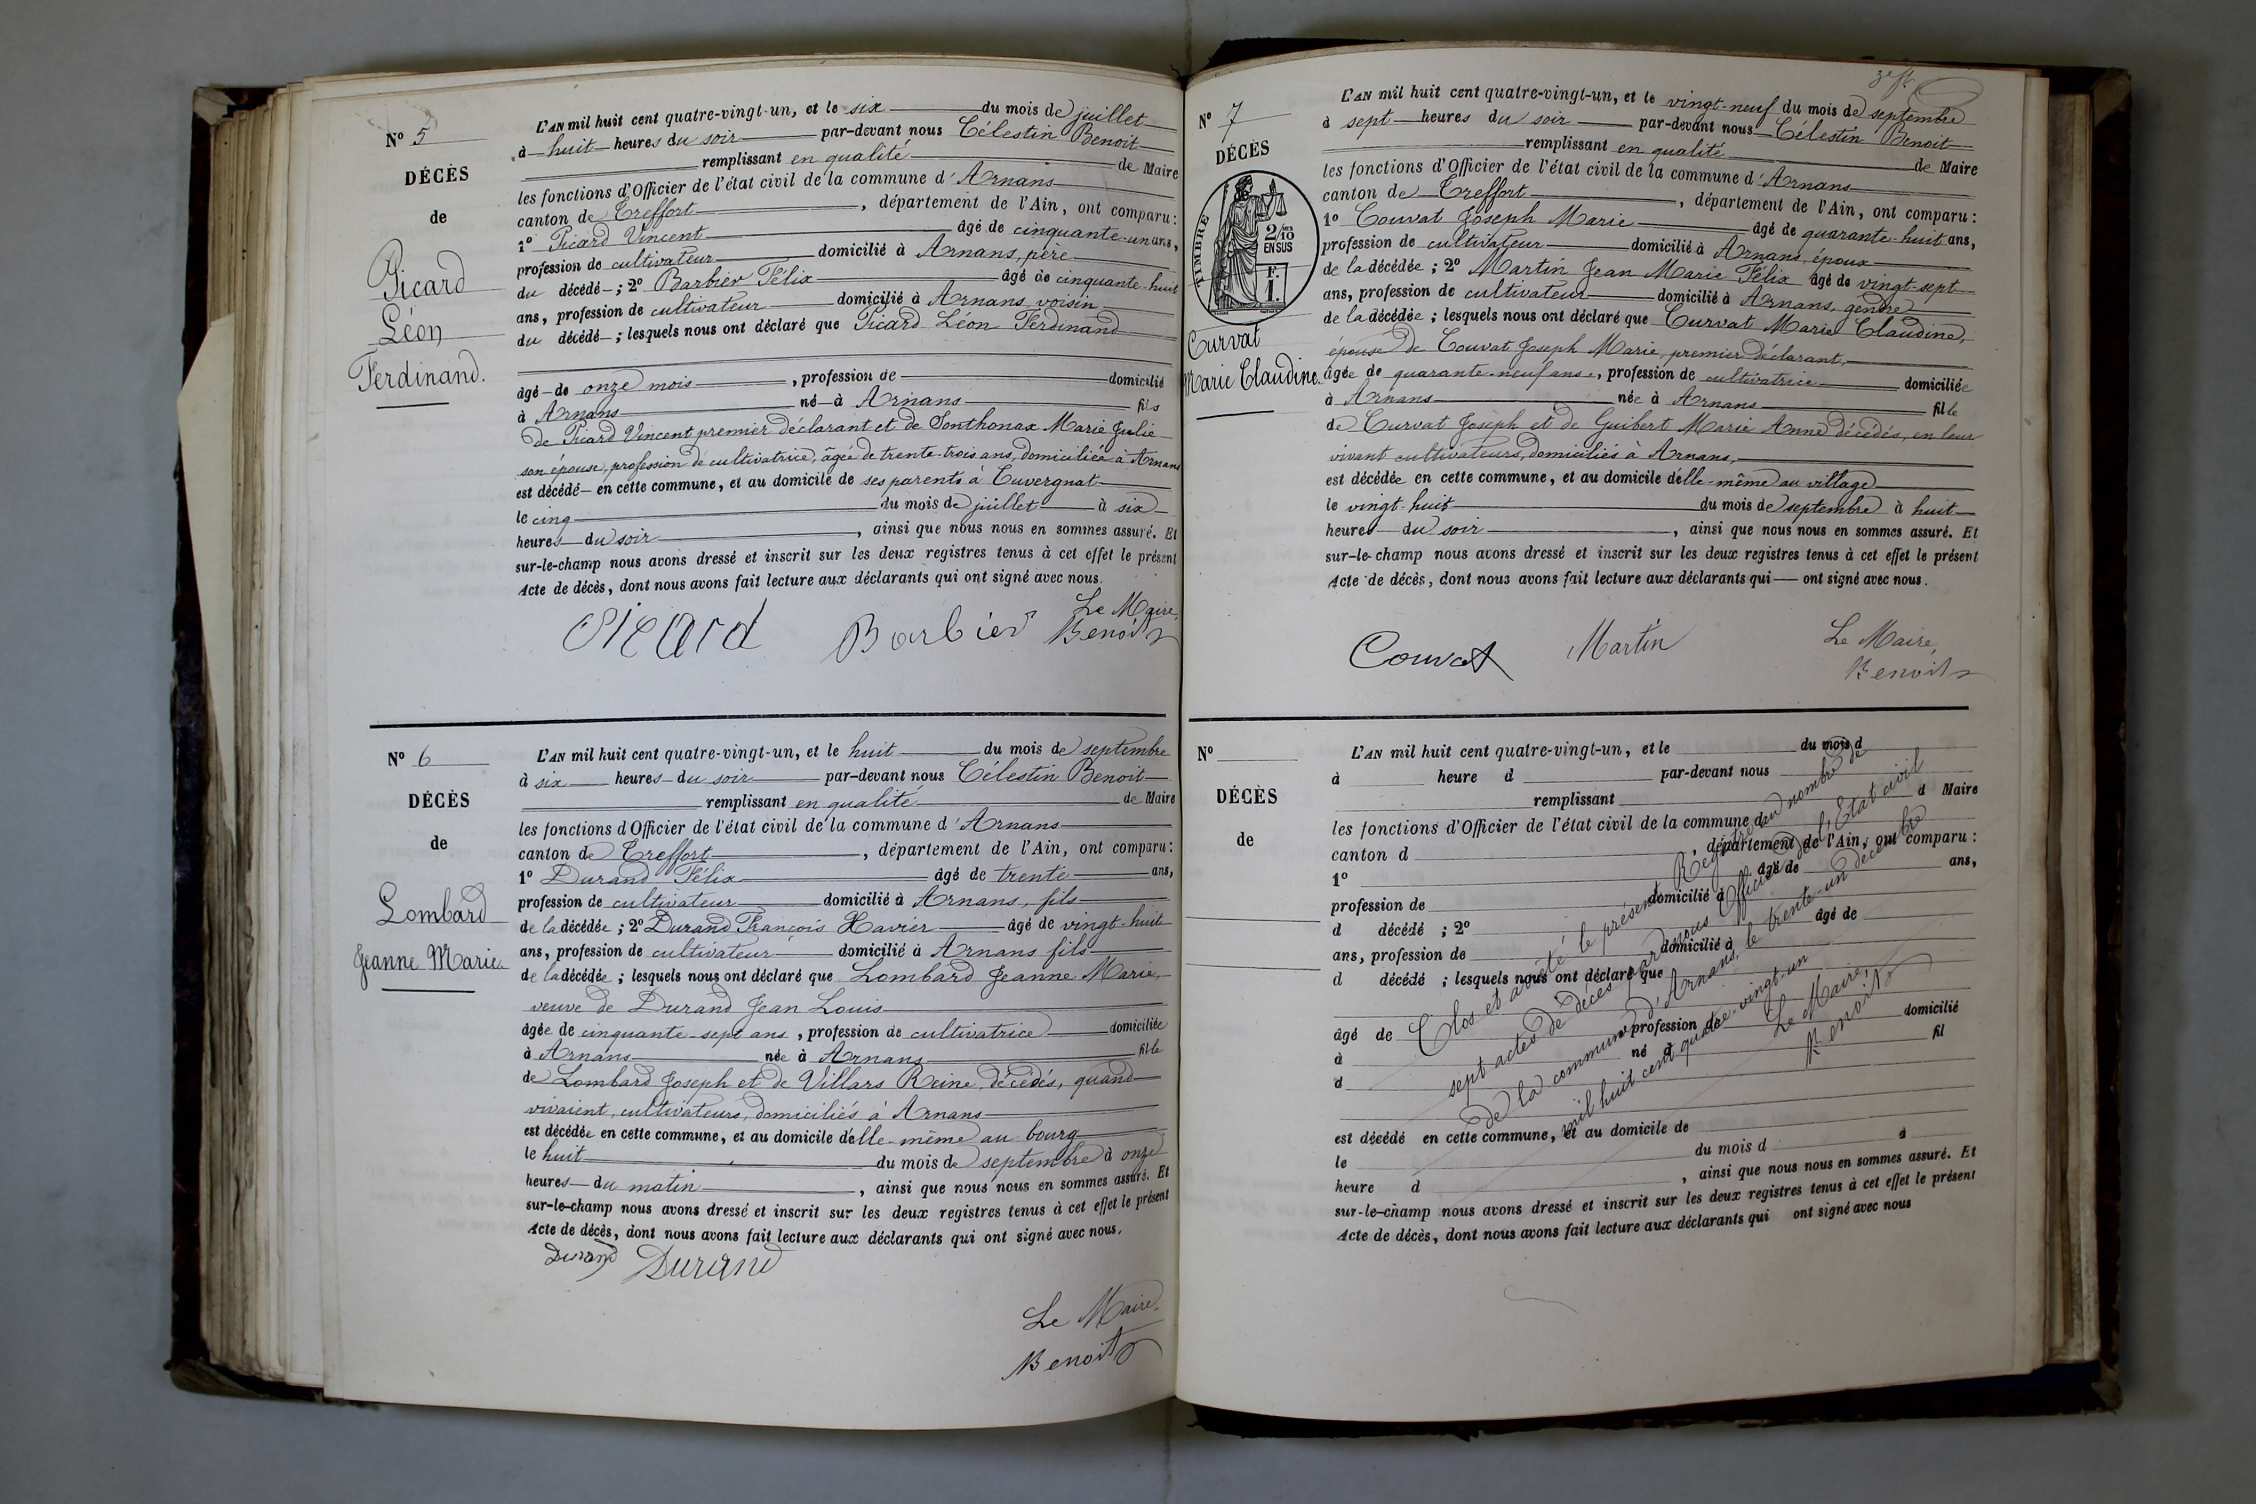 Nº 5
DÉCÈS
de
Picard
Léon
Ferdinand.
L'AN mil huit cent quatre-vingt-un, et le six du mois de juillet
à huit heures du soir par-devant nous Célestin Benoit
remplissant en qualité de Maire
les fonctions d'Officier de l'état civil de la commune d'Arnans
canton de Treffort, département de l'Ain, ont comparu :
1º Picard Vincent âgé de cinquante-un ans,
profession de cultivateur domicilié à Arnans, père
du décédé ; 2º Barbier Félix âgé de cinquante-huit
ans, profession de cultivateur domicilié à Arnans voisin
du décédé ; lesquels nous ont déclaré que Picard Léon Ferdinand
âgé de onze mois, profession de domicilié
à Arnans né à Arnans fils
de Picard Vincent premier déclarant et de Sonthonax Marie Julie
son épouse, profession de cultivatrice, âgée de trente-trois ans, domiciliée à Arnans
est décédé en cette commune, et au domicile de ses parents à Cuvergnat
le cinq du mois de juillet à six
heures du soir, ainsi que nous nous en sommes assuré. Et
sur-le-champ nous avons dressé et inscrit sur les deux registres tenus à cet effet le présent
Acte de décès, dont nous avons fait lecture aux déclarants qui ont signé avec nous.
Picard Barbier Le Maire,
Benoit
Nº 6
DÉCÈS
de
Lombard
Jeanne Marie.
L'AN mil huit cent quatre-vingt-un, et le huit du mois de septembre
à six heures du soir par-devant nous Célestin Benoit
remplissant en qualité de Maire
les fonctions d'Officier de l'état civil de la commune d'Arnans
canton de Treffort, département de l'Ain, ont comparu :
1º Durand Félix âgé de trente ans,
profession de cultivateur domicilié à Arnans, fils
de la décédée ; 2º Durand François Xavier âgé de vingt-huit
ans, profession de cultivateur domicilié à Arnans fils
de la décédée ; lesquels nous ont déclaré que Lombard Jeanne Marie,
veuve de Durand Jean Louis
âgée de cinquante-sept ans, profession de cultivatrice domiciliée
à Arnans née à Arnans fille
de Lombard Joseph et de Villars Reine, décédés, quand
vivaient, cultivateurs, domiciliés à Arnans
est décédée en cette commune, et au domicile d'elle-même au bourg
le huit du mois de septembre à onze
heures du matin, ainsi que nous nous en sommes assuré. Et
sur-le-champ nous avons dressé et inscrit sur les deux registres tenus à cet effet le présent
Acte de décès, dont nous avons fait lecture aux déclarants qui ont signé avec nous.
Durand Durand
Le Maire,
Benoit
Nº 7
DÉCÈS
TIMBRE
2/10
EN SUS
F.
1.
Curvat
Marie Claudine.
L'AN mil huit cent quatre-vingt-un, et le vingt-neuf du mois de septembre
à sept heures du soir par-devant nous Célestin Benoit
remplissant en qualité de Maire
les fonctions d'Officier de l'état civil de la commune d'Arnans
canton de Treffort, département de l'Ain, ont comparu :
1º Couvat Joseph Marie âgé de quarante-huit ans,
profession de cultivateur domicilié à Arnans, époux
de la décédée ; 2º Martin Jean Marie Félix âgé de vingt-sept
ans, profession de cultivateur domicilié à Arnans, gendre
de la décédée ; lesquels nous ont déclaré que Curvat Marie Claudine,
épouse de Couvat Joseph Marie, premier déclarant,
âgée de quarante-neuf ans, profession de cultivatrice domiciliée
à Arnans née à Arnans fille
de Curvat Joseph et de Guibert Marie Anne décédés, en leur
vivant cultivateurs, domiciliés à Arnans,
est décédée en cette commune, et au domicile d'elle-même au village
le vingt-huit du mois de septembre à huit
heures du soir, ainsi que nous nous en sommes assuré. Et
sur-le-champ nous avons dressé et inscrit sur les deux registres tenus à cet effet le présent
Acte de décès, dont nous avons fait lecture aux déclarants qui ont signé avec nous.
Couvat Martin Le Maire,
Benoit
Nº
DÉCÈS
de
L'AN mil huit cent quatre-vingt-un, et le du mois d
à heure d par-devant nous
remplissant d Maire
les fonctions d'Officier de l'état civil de la commune d
canton d, département de l'Ain, ont comparu :
1º âgé de ans,
profession de domicilié à
d décédé ; 2º âgé de
ans, profession de domicilié à
d décédé ; lesquels nous ont déclaré que
âgé de, profession de domicilié
à né à fil
d
est décédé en cette commune, et au domicile de
le du mois d à
heure d, ainsi que nous nous en sommes assuré. Et
sur-le-champ nous avons dressé et inscrit sur les deux registres tenus à cet effet le présent
Acte de décès, dont nous avons fait lecture aux déclarants qui ont signé avec nous
Clos et arrêté le présent Registre au nombre de
sept actes de décès par nous Officier de l'État civil
de la commune d'Arnans, le trente-un décembre
mil huit cent quatre-vingt-un
Le Maire,
Benoit